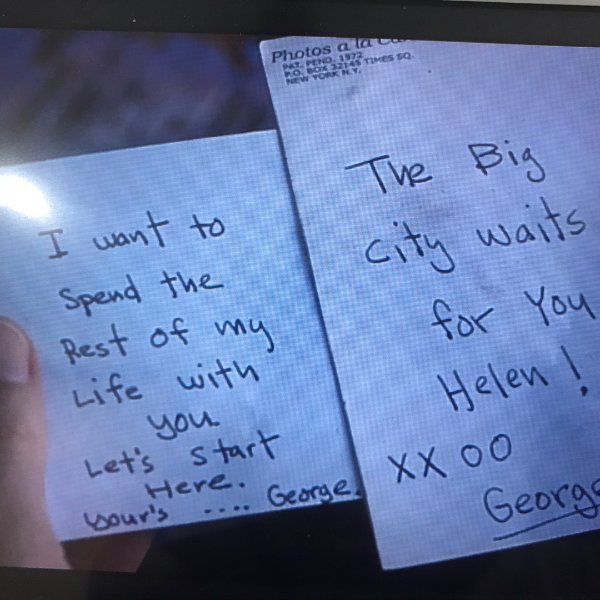 I want to
Spend the
Rest of my
Life with
you
Let's start
Here.
your's .... George.
Photos a la
PAT. PEND. 1972
P.O. BOX 32145 TIMES SQ.
NEW YORK N.Y.
The Big
city waits
for You
Helen!
XX OO
George